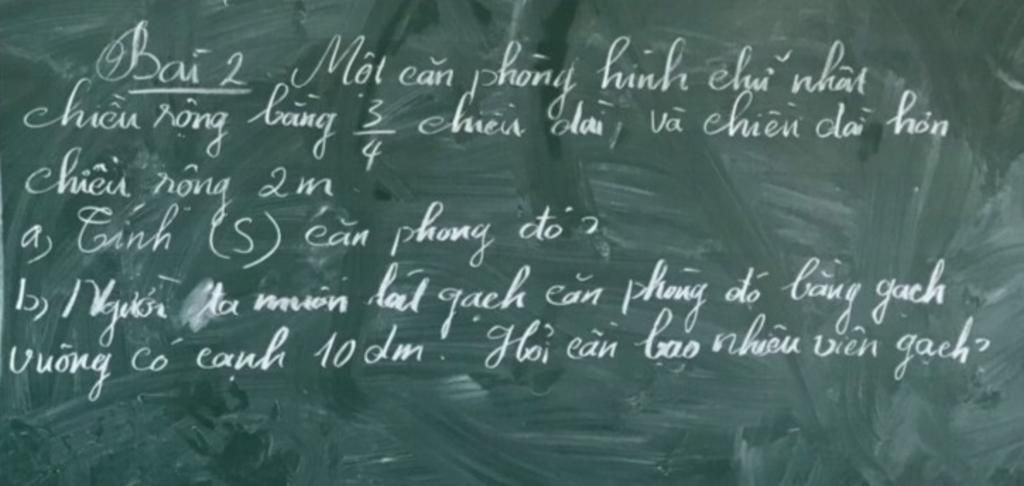 Bài 2 Một căn phòng hình chữ nhật
chiều rộng bằng 3/4 chiều dài, và chiều dài hơn
chiều rộng 2m
a, Tính (S) căn phòng đó?
b, Người ta muốn lát gạch căn phòng đó bằng gạch
vuông có cạnh 10 dm. Hỏi cần bao nhiêu viên gạch?